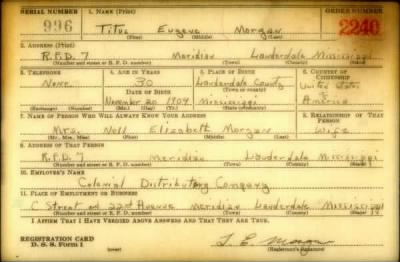 SERIAL NUMBER 1. NAME (Print) ORDER NUMBER
996 Titus Eugene Morgan 2240
(First) (Middle) (Last)
2. ADDRESS (Print)
R.F.D. 7 Meridian Lauderdale Mississippi
(Number and street or R. F. D. number) (Town) (County) (State)
3. TELEPHONE 4. AGE IN YEARS 5. PLACE OF BIRTH 6. COUNTRY OF CITIZENSHIP
None 30 Lauderdale County United States
DATE OF BIRTH (Town or county)
November 20 1909 Mississippi America
(Exchange) (Number) (Mo.) (Day) (Yr.) (State or country)
7. NAME OF PERSON WHO WILL ALWAYS KNOW YOUR ADDRESS 8. RELATIONSHIP OF THAT PERSON
Mrs. Nell Elizabeth Morgan Wife
(Mr., Mrs., Miss) (First) (Middle) (Last)
9. ADDRESS OF THAT PERSON
R.F.D. 7 Meridian Lauderdale Mississippi
(Number and street or R. F. D. number) (Town) (County) (State)
10. EMPLOYER'S NAME
Colonial Distributing Company
11. PLACE OF EMPLOYMENT OR BUSINESS
C Street and 22nd Avenue Meridian Lauderdale Mississippi
(Number and street or R. F. D. number) (Town) (County) (State)
I AFFIRM THAT I HAVE VERIFIED ABOVE ANSWERS AND THAT THEY ARE TRUE.
REGISTRATION CARD
D. S. S. Form 1 (over) T. E. Morgan
(Registrant's signature)